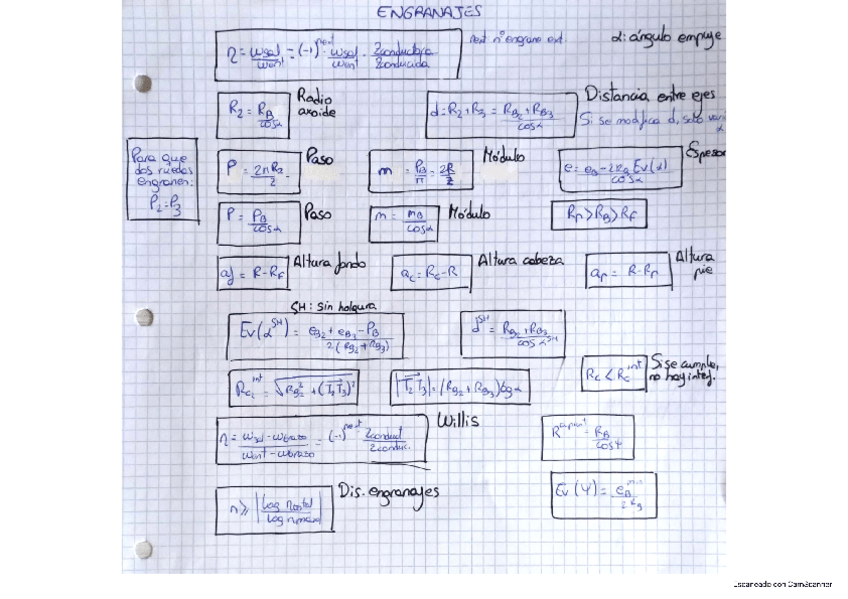 ENGRANAJES
η = ωsal/ωent = (-1)^next · ωsal/ωent · Zconductora/Zconducida
next nº engrane ext.
α: ángulo empuje
R2 = RB/cosα
Radio axoide
d = R2 + R3 = (RB2 + RB3)/cosα
Distancia entre ejes
Si se modifica d, solo varía α
Para que
dos ruedas
engranen:
P2 = P3
P = 2πR2/2
Paso
m = PB/π = 2R/z
Módulo
e = (eB - 2RB Ev(α))/cosα
Espesor
P = PB/cosα
Paso
m = mB/cosα
Módulo
RP > RB > RF
af = R - RF
Altura fondo
ac = RC - R
Altura cabeza
aP = R - RP
Altura pie
SH: Sin holgura
Ev(α^SH) = (eB2 + eB3 - PB)/(2(RB2 + RB3))
d^SH = (RB2 + RB3)/cosα^SH
RC2^int = √(RB2² + (T2T3)²)
|T2T3| = (RB2 + RB3) tgα
RC < RC^int
Si se cumple,
no hay interf.
η = (ωsal - ωbrazo)/(ωent - ωbrazo) = (-1)^next Zconduct/Zconduc.
Willis
R^apunt = RB/cosΨ
n ≥ |log ηtotal/log ηmáx|
Dis. engranajes
Ev(Ψ) = eB/2RB
Escaneado con CamScanner